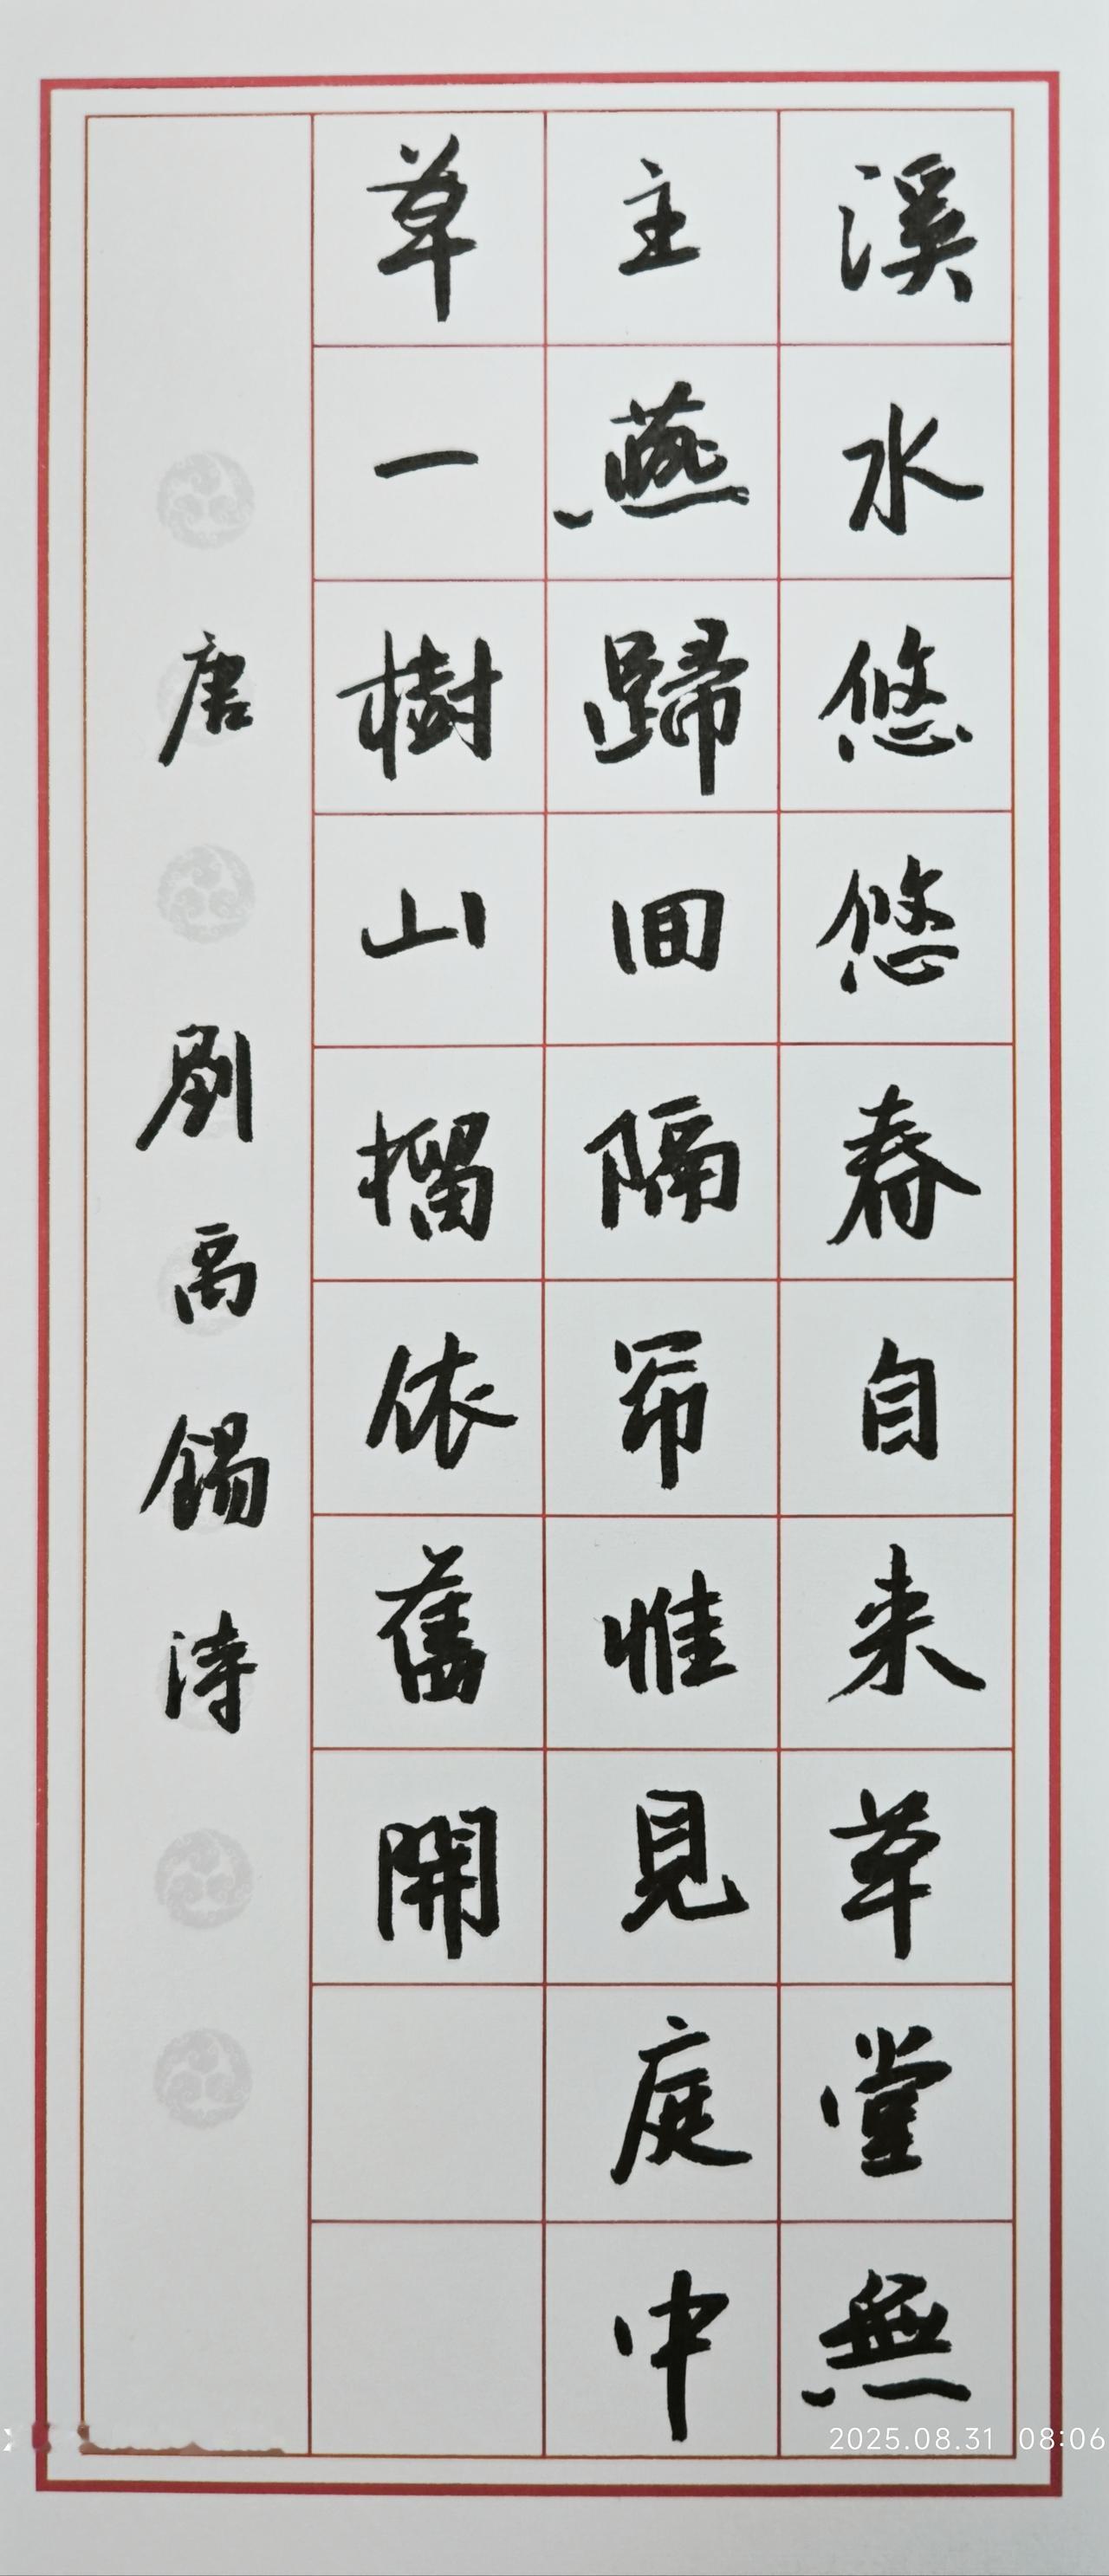 溪水悠悠春自来草堂無
主燕歸回隔帘惟見庭中
草一樹山榴依舊開
唐劉禹錫詩
2025.08.31 08:06